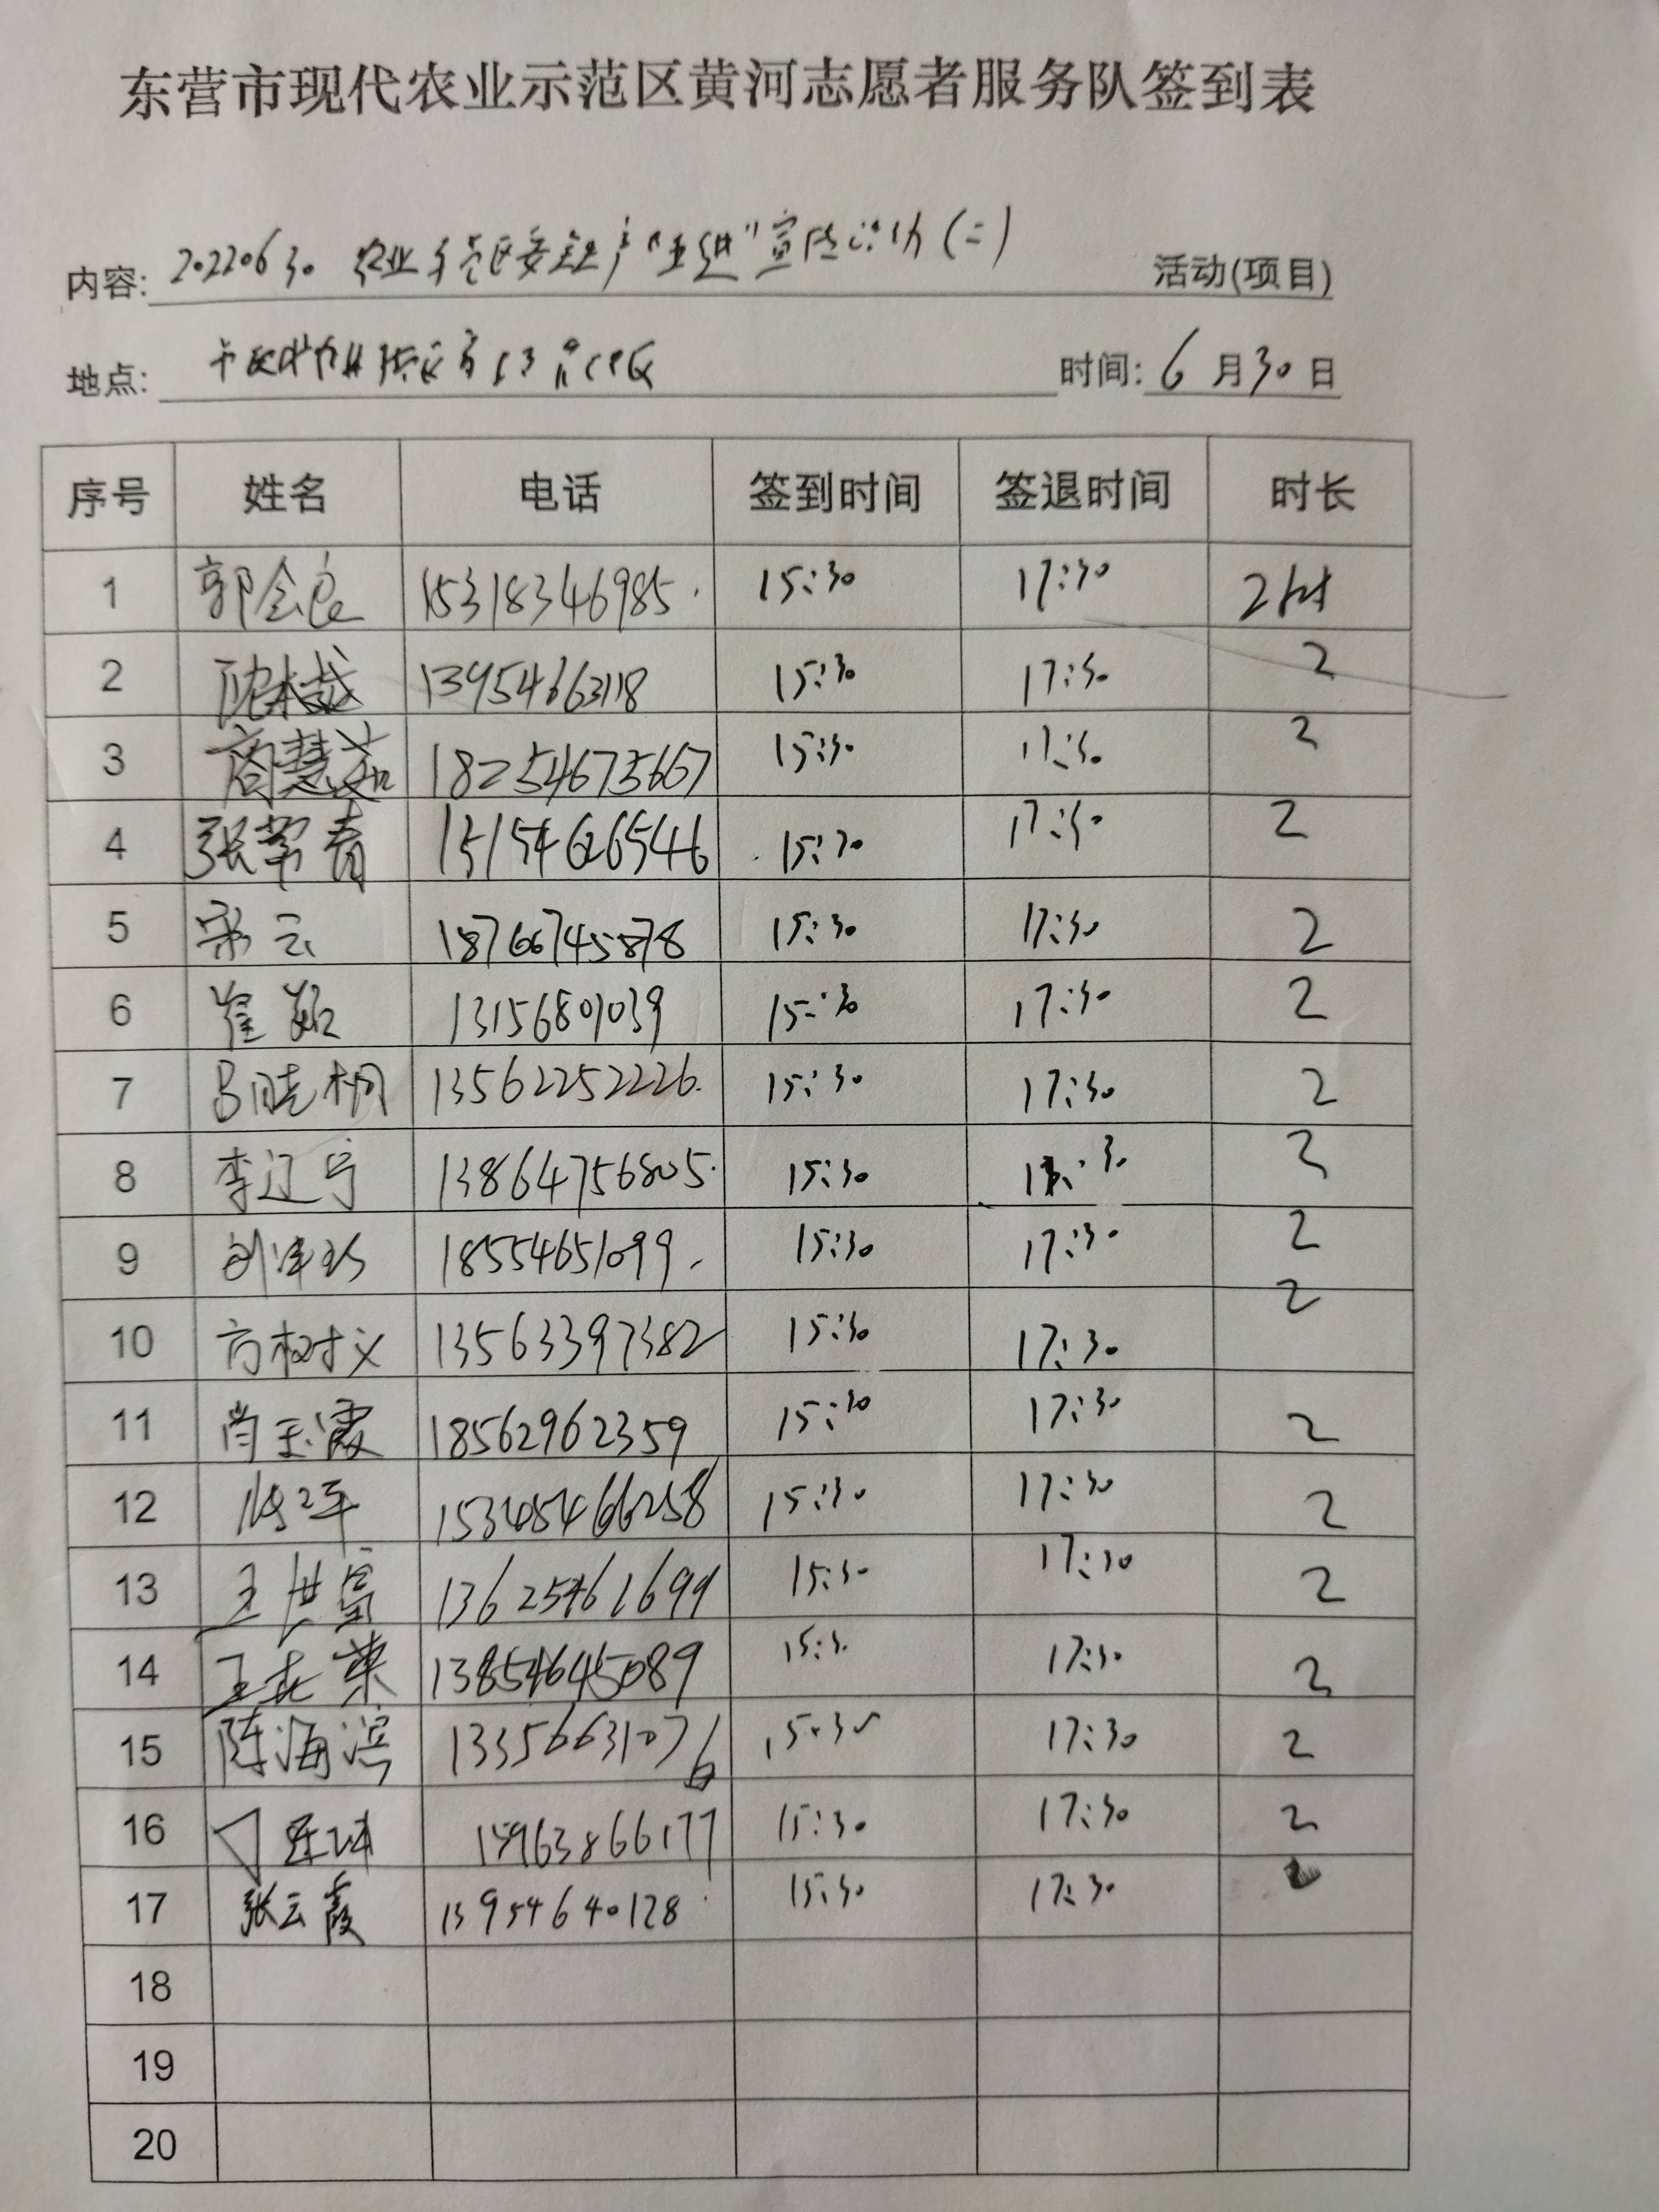 东营市现代农业示范区黄河志愿者服务队签到表
内容: 20220630 农业示范区安全生产"五进"宣传活动(二) 活动(项目)
地点: 时间: 6月30日
序号 姓名 电话 签到时间 签退时间 时长
1 郭会良 15318346985 15:30 17:30 2时
2 13954663118 15:30 17:30 2
3 商慧茹 18254675667 15:30 17:30 2
4 张常青 15154626546 15:30 17:30 2
5 宋云 18766745878 15:30 17:30 2
6 崔 13156801039 15:30 17:30 2
7 吕晓桐 13562252226 15:30 17:30 2
8 李辽宁 13864756805 15:30 17:30 2
9 18554651099 15:30 17:30 2
10 方树义 13563397382 15:30 17:30 2
11 肖玉霞 18562962359 15:30 17:30 2
12 15345466258 15:30 17:30 2
13 王世富 13625461699 15:30 17:30 2
14 王 荣 13854645089 15:30 17:30 2
15 陈海滨 13356631076 15:30 17:30 2
16 15963866177 15:30 17:30 2
17 张云霞 13954640128 15:30 17:30 2
18
19
20